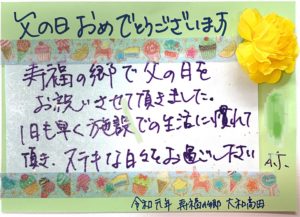 父の日おめでとうございます
寿福の郷で父の日を
お祝いさせて頂きました。
1日も早く施設での生活に慣れて
頂き、ステキな日々をお過ごし下さい
A.J.
令和元年 寿福の郷 大和高田